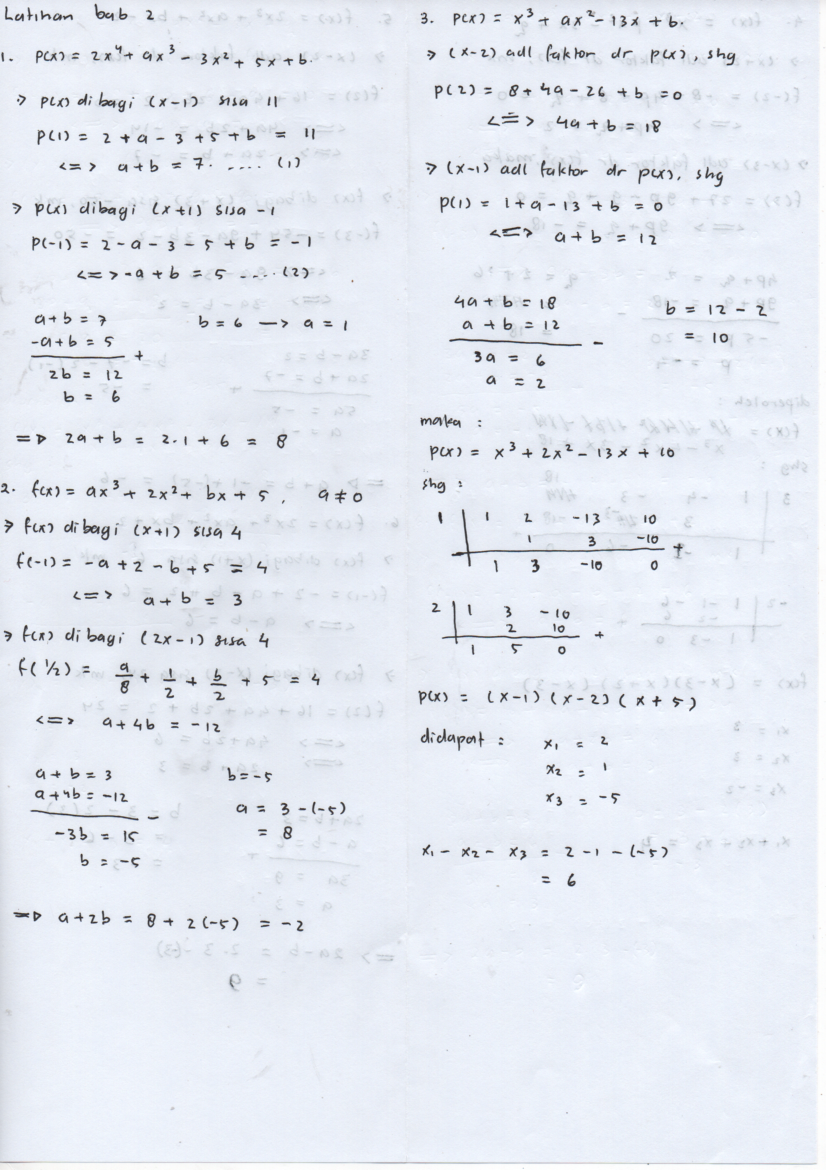 Latihan bab 2
1. P(x) = 2x⁴ + ax³ - 3x² + 5x + b.
→ P(x) dibagi (x-1) sisa 11
P(1) = 2 + a - 3 + 5 + b = 11
<=> a + b = 7. ..... (1)
→ P(x) dibagi (x+1) sisa -1
P(-1) = 2 - a - 3 - 5 + b = -1
<=> -a + b = 5 .... (2)
a + b = 7 b = 6 → a = 1
-a + b = 5 +
2b = 12
b = 6
=> 2a + b = 2.1 + 6 = 8
2. f(x) = ax³ + 2x² + bx + 5, a ≠ 0
→ f(x) dibagi (x+1) sisa 4
f(-1) = -a + 2 - b + 5 = 4
<=> a + b = 3
→ f(x) dibagi (2x-1) sisa 4
f(1/2) = a/8 + 1/2 + b/2 + 5 = 4
<=> a + 4b = -12
a + b = 3 b = -5
a + 4b = -12 -
a = 3 - (-5)
-3b = 15 = 8
b = -5
=> a + 2b = 8 + 2(-5) = -2
3. P(x) = x³ + ax² - 13x + b.
→ (x-2) adl faktor dr p(x), shg
P(2) = 8 + 4a - 26 + b = 0
<=> 4a + b = 18
→ (x-1) adl faktor dr p(x), shg
P(1) = 1 + a - 13 + b = 0
<=> a + b = 12
4a + b = 18 b = 12 - 2
a + b = 12 - = 10
3a = 6
a = 2
maka :
P(x) = x³ + 2x² - 13x + 10
shg :
1 | 1 2 -13 10
1 3 -10 +
1 3 -10 0
2 | 1 3 -10
2 10 +
1 5 0
P(x) = (x-1) (x-2) (x+5)
didapat : x₁ = 2
x₂ = 1
x₃ = -5
x₁ - x₂ - x₃ = 2 - 1 - (-5)
= 6